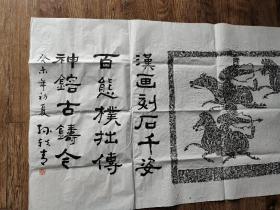 漢画刻石千姿
百態樸拙傳
神鎔古鑄今
癸未年初夏